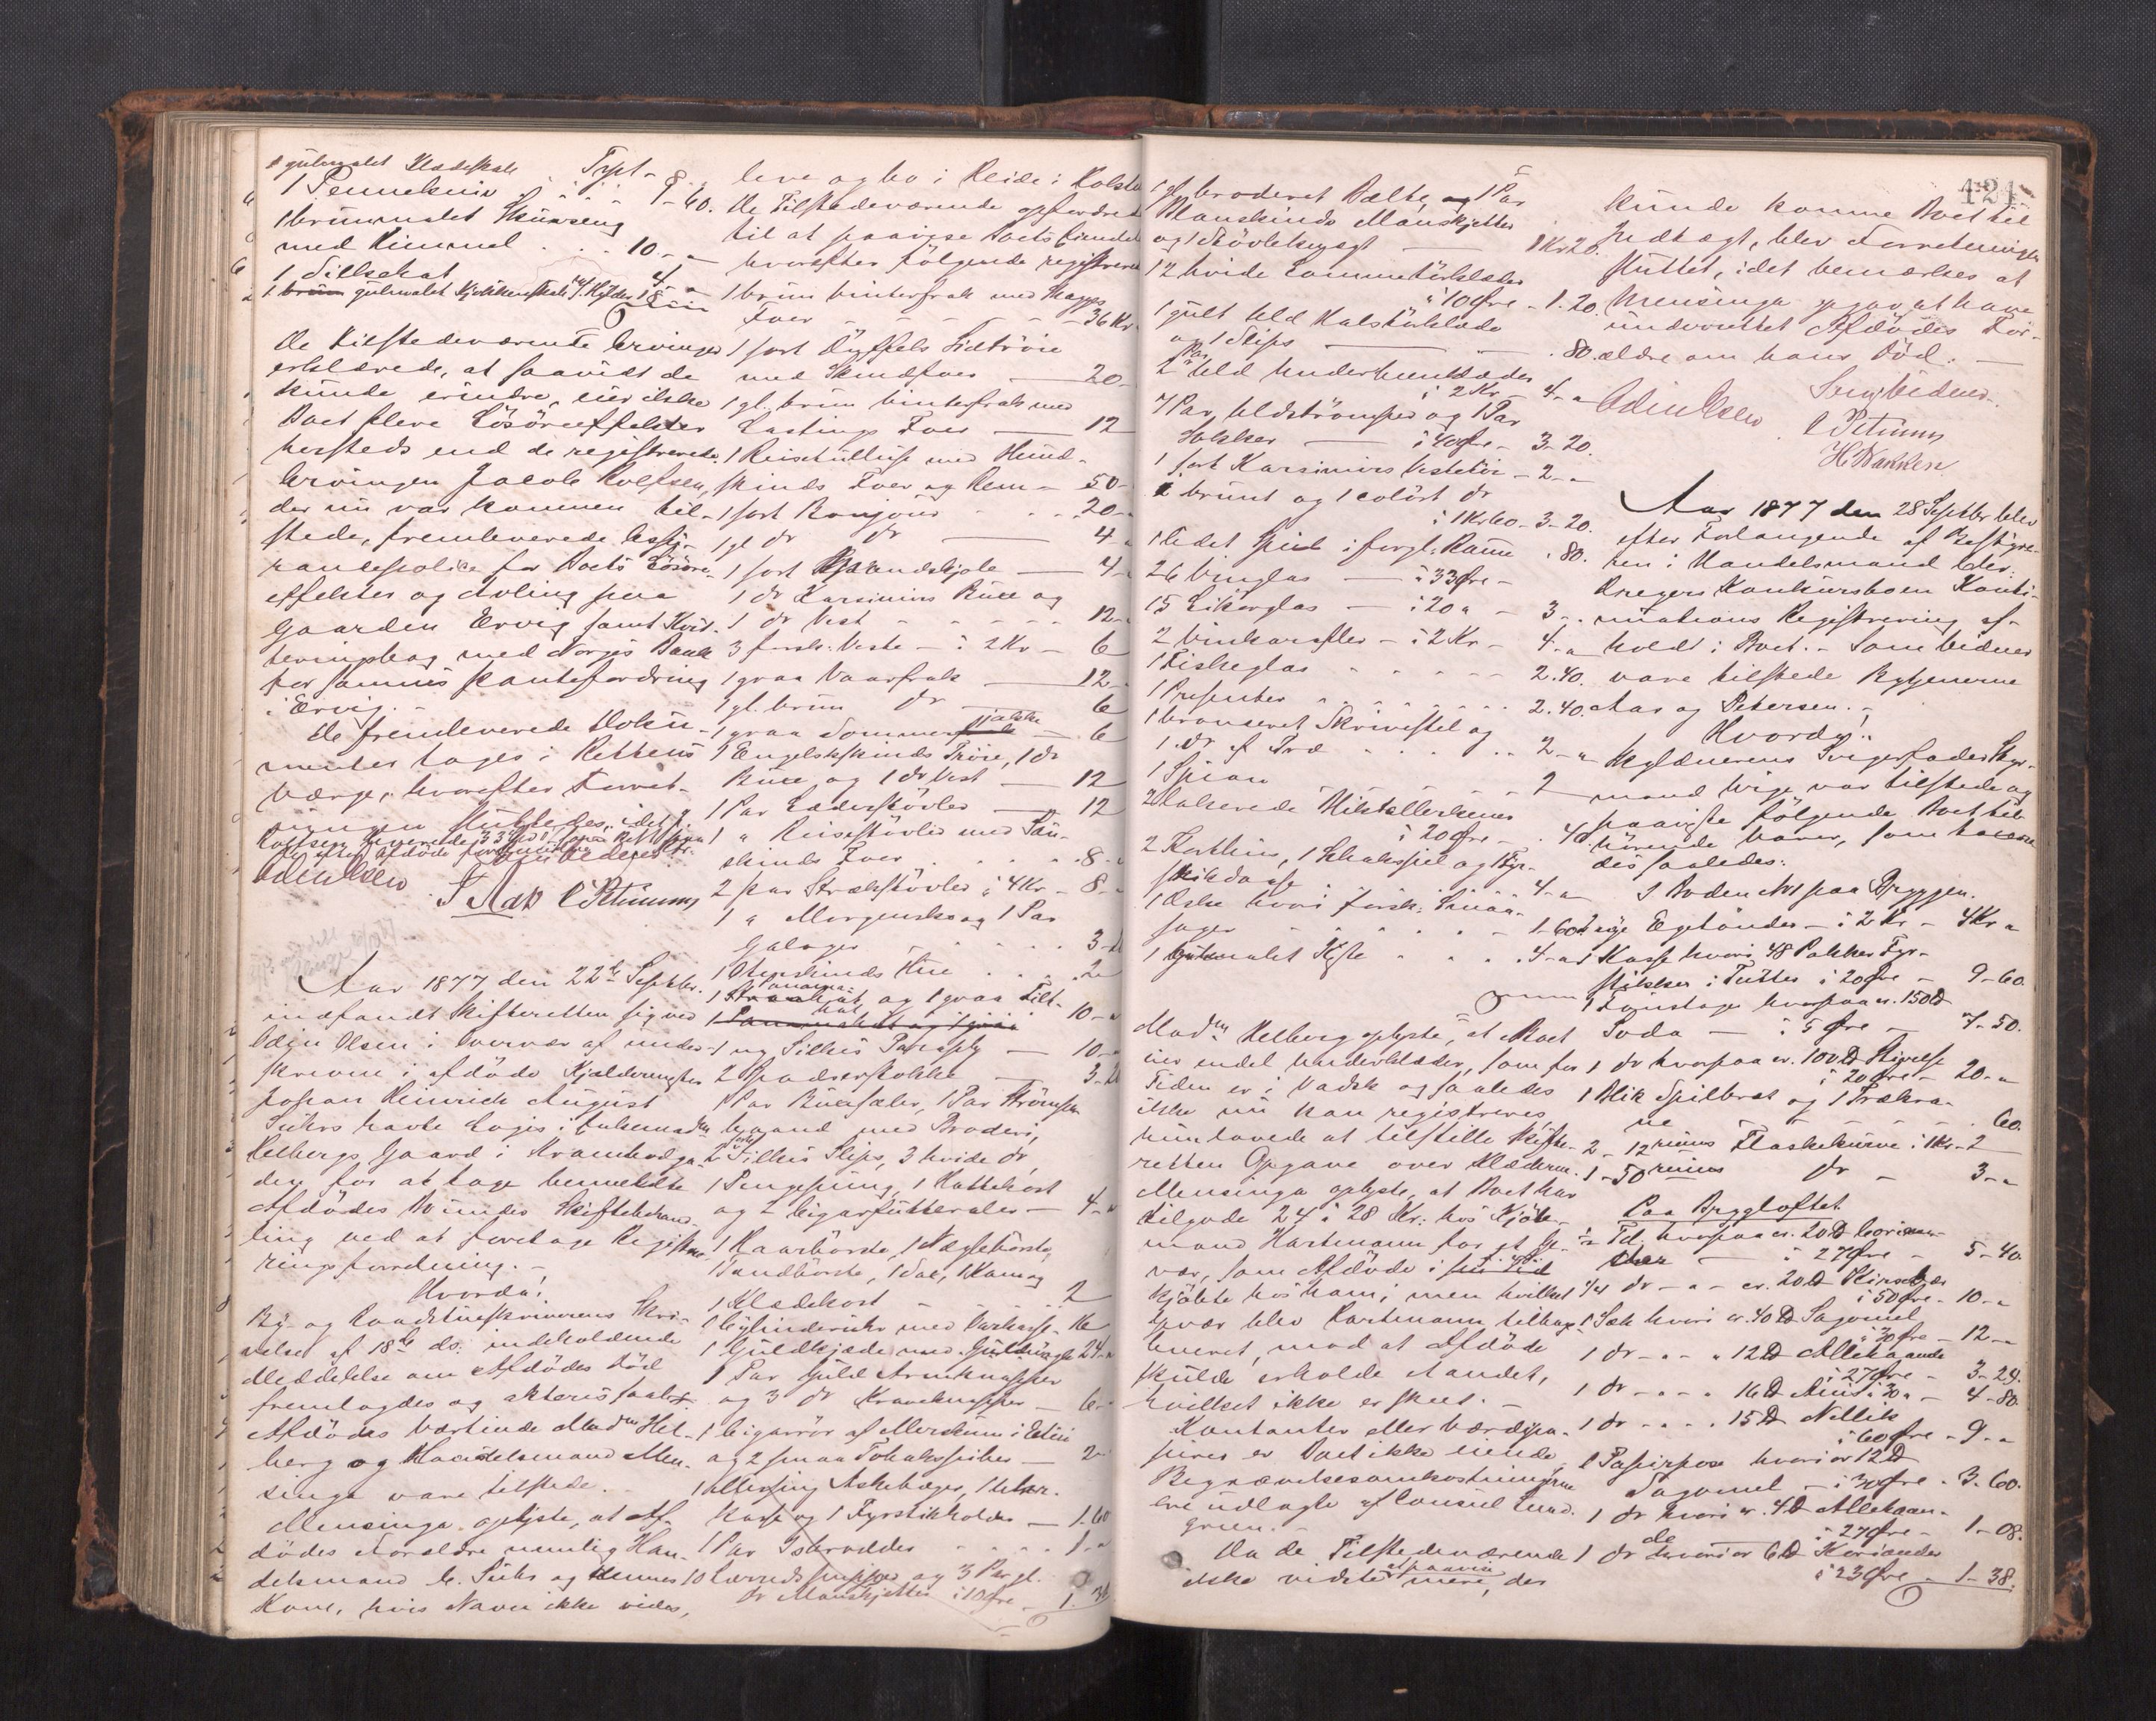 1 gulmalet Klædeskab Tvist-
1 Penneknív . . . 1-40.
1 brunmalet Skuvseng
med Himmel . . 10.-
1 Sillsekat
1 gulmalet Kjøkkenskab
De tilstedeværende Arvinger
erklærede, at saavidt de
kunde erindre, eier ikke
Boet flere Løsøreeffekter
hersteds end de registrerede.
Arvingen Jacob Rolfsen,
der nu var kommen til-
stede, fremleverede Assu-
rancepolice for Boets Løsøre-
effekter og Avling paa
Gaarden Ervig samt Kvit-
teringsbog med Norges Bank
for sammes Pantefordring
i Ervig.-
De fremleverede Doku-
menter toges i Rettens
Værge, hvorefter Forret-
ningen sluttedes, idet J.
Odin Olsen
J Aas C Petersen
Aar 1877 den 22de Septbr.
indfandt Skifteretten sig ved
Odin Olsen i Overvær af under-
skrevne i afdøde Kjældermester
Johan Heinrich August
Suhrs havte Logis i Enkemadm
Helbergs Gaard i Strandga-
den for at tage bemeldte
Afdødes Bo under Skiftebehand-
ling ved at foretage Registre-
ringsforretning.-
Hvorda!
By- og Raadstueskriverens Skri-
velse af 18de ds. indeholdende
Meddelelse om Afdødes Død
fremlagdes og akteris saalydende
Afdødes Værtinde Madm Hel-
berg og Handelsmand Men-
singa vare tilstede.
Mensinga oplyste, at Af-
dødes Forældre nemlig Han-
delsmand C. Suhr og dennes
Kone, hvis Navn ikke vides,
leve og bo i Heide i Holste
De Tilstedeværende opfordredes
til at paavise Boets Eiendele
hvorefter følgende registreredes
1 brun Vinterfrak med
Foer - - - - - 36 Kr
1 sort Dyffels Sidtrøie
med Skindfoer - 20-
1 gl. brun Vinterfrak med
Lastings Foer - 12
1 Reisekuffert med Hund-
skinds Foer og Rem - 50-
1 sort Bonjour . . 20-
1 gl dr dr - 4
1 sort Spadserkjole - 4-
1 dr Kasimirs Buxe og
1 dr Vest - - - - 12-
3 forsk. Veste - à 2 Kr - 6
1 graa Vaarfrak - 12-
1 gl. brun dr - 6
1 graa Sommerjakke - 6
1 Engelskskinds Trøie, 1 dr
Buxe og 1 dr Vest - 12
1 Par Læderstøvler - 12
1 " Reisestøvler med Sau-
skinds Foer . . . . 8-
2 Par Strækstøvler à 4 Kr - 8-
1 " Morgensko og 1 Par
Galoger . . . . 3-
1 Oterskinds Hue . . . 2
1 Panama-
hat og 1 graa Filt-
hat 10-
1 ny Silkes Paraply - 10-
2 Spadserstokke 3-20
1 Par Buxeseler, 1 Par Strømpe-
baand med Broderi,
2 sorte Silkes Slips, 3 hvide dr,
1 Pengepung, 1 Hattekost
og 2 Cigarfutteraler - 4-
1 Haarbørste, 1 Neglebørste
1 Tandbørste, 1 Sax, 1 Kam og
1 Klædekost - - - 2
1 Cylinderuhr med Urkasse - 16
1 Guldkjæde med Guldnøgle 24-
1 Par Guld Armknapper
og 3 dr Kraveknapper - 6-
1 Cigarrør af Merskum i Etui
og 2 smaa Tobakspiber - 2-
1 Messing Askebæger, 1 Cigar-
kasse og 1 Fyrstikholder - 1.60
1 Par Isbrodder . . . 1-
10 Lærreds Snipper og 3 Par gl.
dr Manskjetter à 10 Øre - 1.30
121
1 gl. broderet Bælte og 1 Par
Blanskinds Manskjetter
og 1 Støvleknægt - 1 Kr 20.
12 hvide Lommetørklæder
à 10 Øre - 1.20.
1 gult Uld Halstørklæde
og 1 Slips - .80.
2 Par Uld Underbenklæder
à 2 Kr - 4-
7 Par Uldstrømper og 1 Par
Sokker - à 40 Øre - 3-20.
1 sort Kasimirs Vestetøi - 2-
1 brunt og 1 colørt dr
à 1 Kr 60 - 3-20.
1 lidet Speil i forgl. Ramme .80.
26 Vinglas - à 33 Øre -
15 Likørglas - à 20 " - 3-
2 Vinkarafler - à 2 Kr - 4-
1 Fiskeglas . . . . 2.40.
1 Presenter . . . . . . 2.40.
1 bronseret Skrivestel og
1 dr af Træ . . . . 2-
1 Spian 2
2 lakerede Hviletallerkener
à 20 Øre - .40.
2 Korthus, 1 Schakspil og 1 Fyr-
stikdaase . . . . . 4-
1 Æske hvori forsk. Smaa-
sager - - - - - 1-60
1 gulmalet Kiste . . . . 4-
Madm Helberg oplyste, at Boet
eier endel Underklæder, som for
Tiden er i Vadsk og saaledes
ikke nu kan registreres,
hun lovede at tilstille Skifte-
retten Opgave over Klæderne.
Mensinga oplyste, at Boet har
tilgode 24 à 28 Kr. hos Kjøb-
mand Hartmann for et Ge-
vær, som Afdøde i sin Tid
kjøbte hos ham, men hvilket
Gevær blev Hartmann tilbage-
leveret, mod at Afdøde
skulde erholde et andet,
hvilket ikke er skeet.-
Kontanter eller Værdipa-
pirer er Boet ikke eiende.
Begravelsesomkostningerne
ere udlagte af Consul Lund-
green.-
Da de Tilstedeværende
ikke vidste at paavise mere, der
kunde komme Boet til
Indtægt, blev Forretningen
sluttet, idet bemærkes at
Mensinga opgav at have
underrettet Afdødes For-
ældre om hans Død.-
Odin Olsen
Som Vidner
C Petersen
Aar 1877 den 28 Septbr blev
efter Forlangende af Bestyre-
ren i Handelsmand Peder
Kregers Konkursbo en Konti-
nuations Registrering af-
holdt i Boet.- Som Vidner
vare tilstede Bytjenerne
Aas og Petersen.-
Hvorda!
Skyldnerens Svigerfader Skyds-
mand Wige var tilstede og
paaviste følgende Boet til-
hørende Varer, som taxere-
des saaledes:
I Boden No 1 paa Bryggen.
2 nye Egetønder - à 2 Kr - 4 Kr "
1 Kasse hvori 48 Pakker Fyr-
stikker i Futter à 20 Øre - 9-60.
1 Fustage hvorpaa cr. 150 ℔
Soda - à 5 Øre - 7-50.
1 dr hvorpaa cr. 100 ℔ Stivelse
à 20 Øre - 20.-
1 Blik Spilbræt og 1 Trækra-
ne - - - - - .60.
2 - 12 rums Flaskekurve à 1 Kr - 2
1 - 50 rums dr - 3-
Paa Bryggloftet
½ Td. hvorpaa cr. 20 ℔ Corian-
der à 27 Øre - 5-40.
¼ dr - " - cr. 20 ℔ Kirsebær
à 50 Øre - 10-
1 Sæk hvori cr. 40 ℔ Sagomel
à 30 Øre - 12-
1 dr - " - " 12 ℔ Allehaande
à 27 Øre - 3-24.
1 dr - " - " 16 ℔ Anis à 30 " - 4-80.
1 dr - " - " 15 ℔ Nellik
à 60 Øre - 9-
1 Papirpose hvori cr 12 ℔
Sagomel - à 30 Øre - 3.60.
1 dr hvori cr. 4 ℔ Allehaan-
de à 27 Øre - 1-08.
1 dr hvori cr 6 ℔ Koriander
à 23 Øre - 1-38.